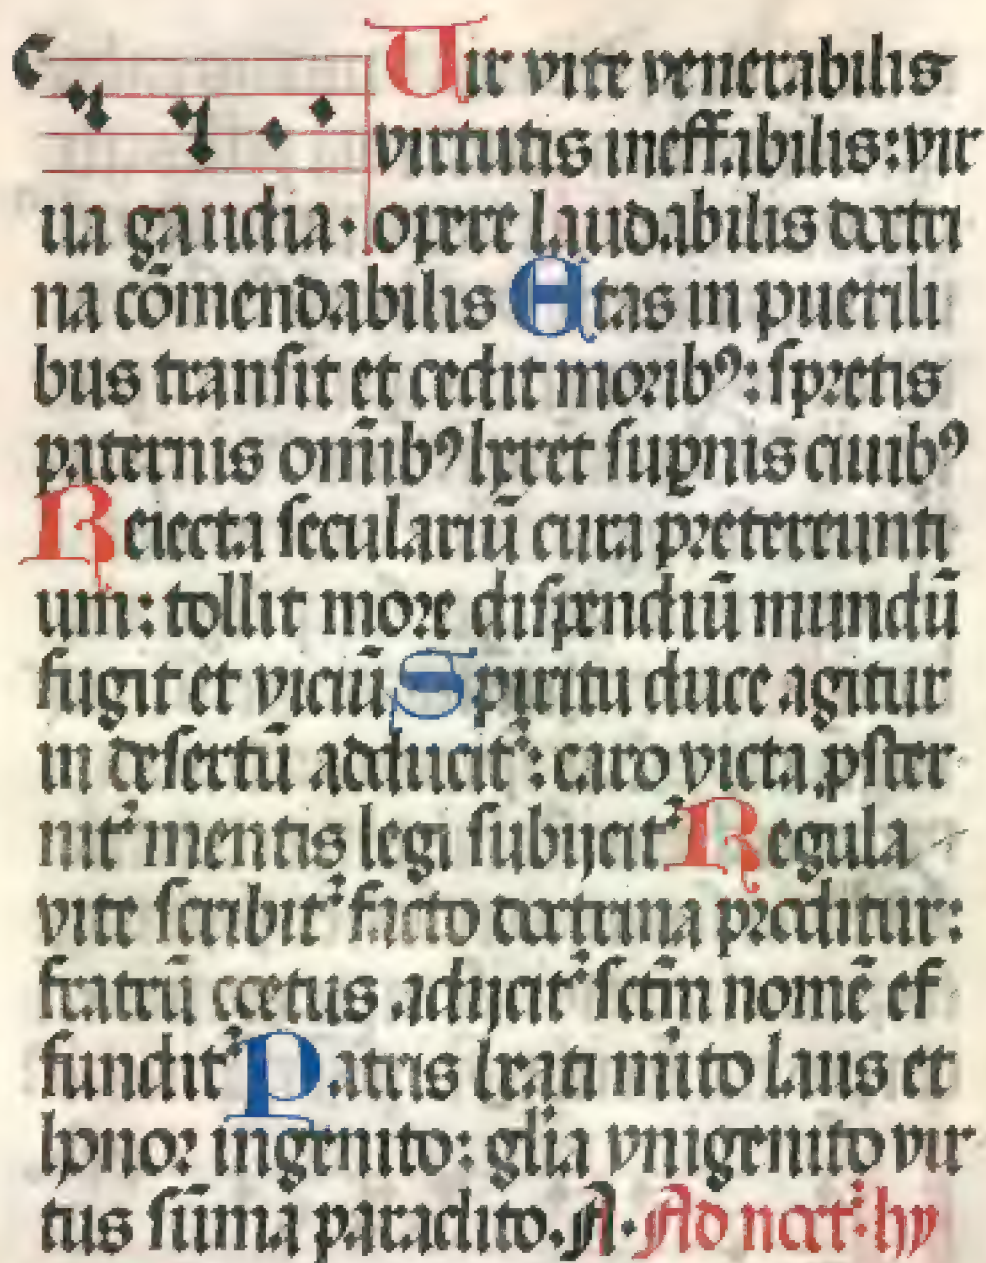 Uir vite venerabilis
virtutis ineffabilis: vir
tua gaudia. opere laudabilis doctri
na cõmendabilis Etas in puerili
bus transit et cedit moribꝰ: spretis
paternis om̃ibꝰ heret supnis ciuibꝰ
Reiecta seculariũ cura pretereunti
um: tollit more dispendiũ mundũ
fugit et viciũ Spiritu duce agitur
in desertũ adducit᷑: caro victa ꝓster
nit᷑ mentis legi subijcit᷑ Regula
vite scribit᷑ facto doctrina proditur:
fratrũ cetus adijcit᷑ sctm̃ nomẽ ef
fundit᷑ Patris beati mi̾to laus et
honor ingenito: gl̃ia vnigenito vir
tus sũma paraclito. A. Ad noct᷑: hy